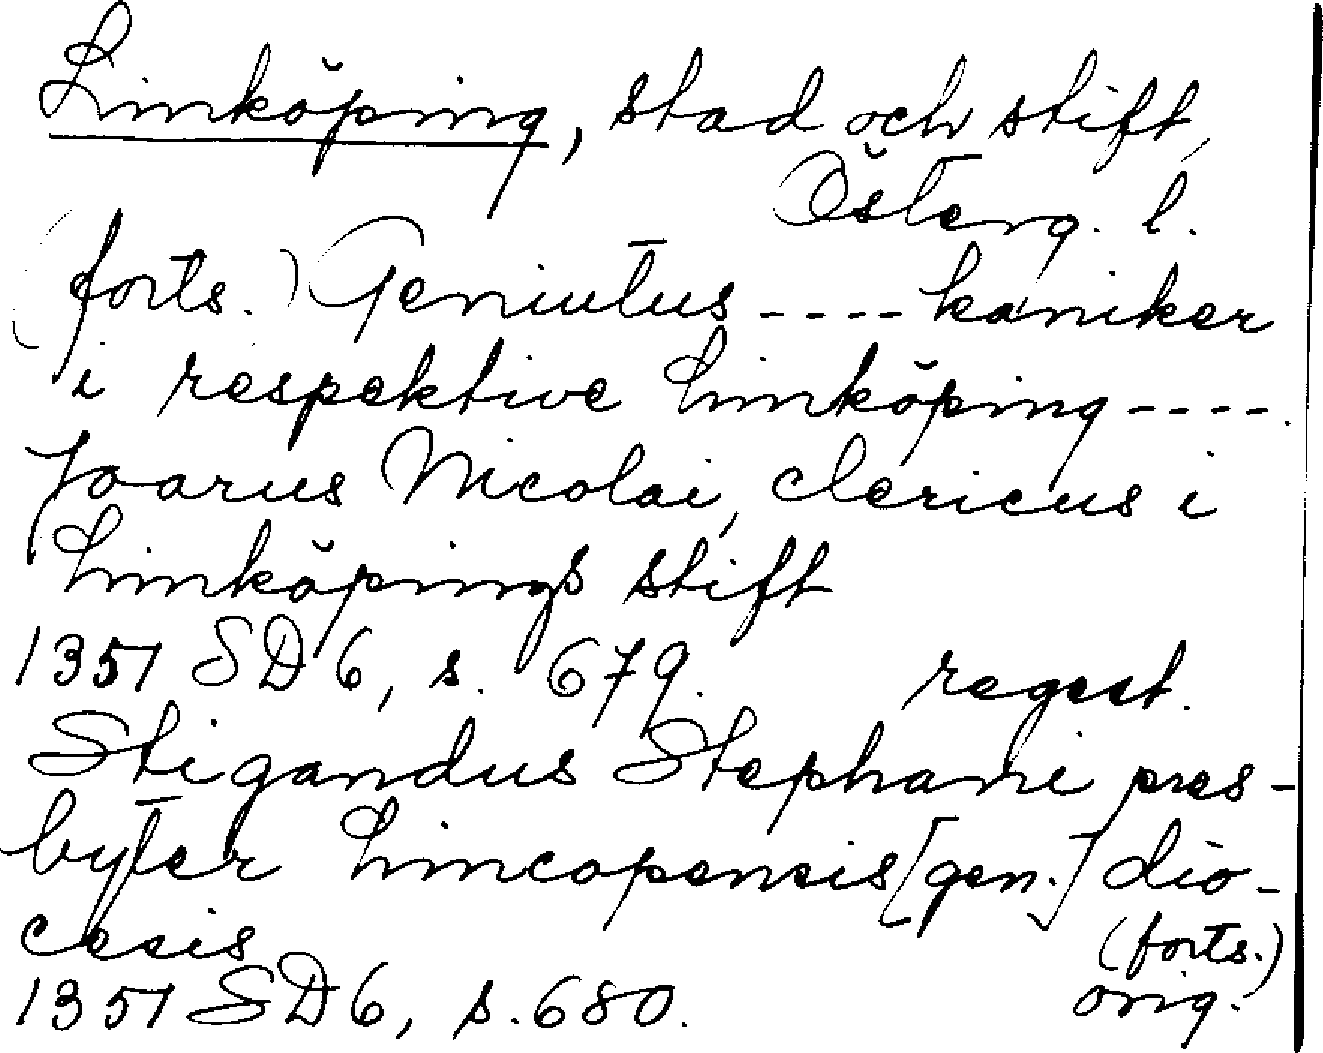 Linköping, stad och stift,
Österg. l.
(forts.) Geniutus ---- kaniker
i respektive Linköping ----.
Joarus Nicolai, clericus i
Linköpings stift
1351 SD 6, s. 679. regest.
Stigandus Stephani pres-
byter Lincopensis [gen.] dio-
cesis (forts.)
1351 SD 6, s. 680. orig.